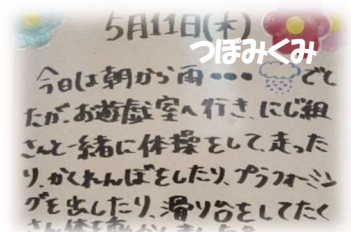 5月11日(木)
つぼみくみ
今日は朝から雨•••でし
たが、お遊戯室へ行き、にじ組
さんと一緒に体操をして、走った
り、かくれんぼをしたり、プラフォーミン
グを出したり、滑り台をしてたく
さん体を動かしました